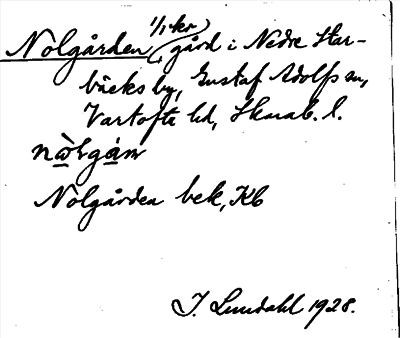 Nolgården (1/1 kr) gård i Nedre Star-
bäcks by, Gustaf Adolfs sn,
Vartofta hd, Skarab. l.
Nolgården bek, Kb
I. Lundahl 1928.